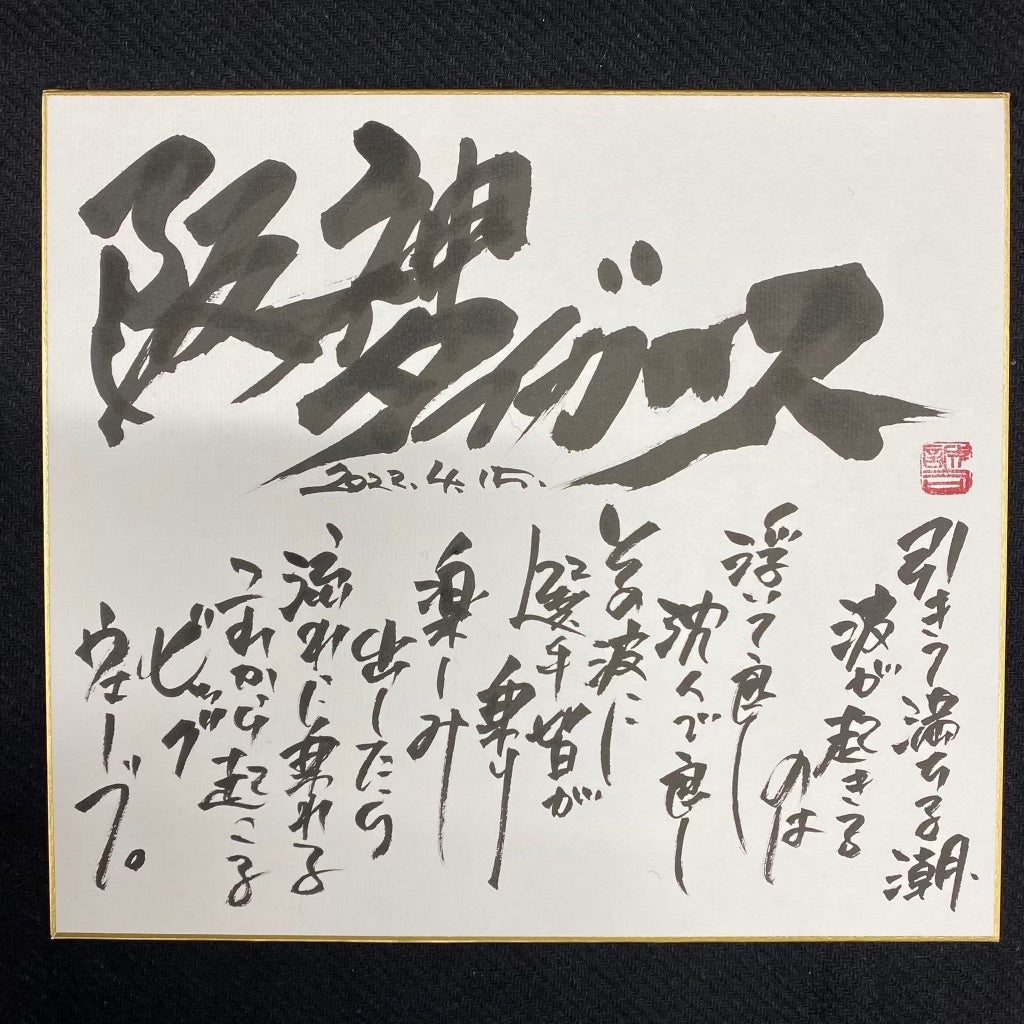 阪神
タイガース
2022.4.15.
引きう満ちる潮
波が起きる
のは
浮いて良し
沈んで良し
その波に
選手皆が
乗り
楽しみ
出したら
流れに乗れる
これから起こる
ビッグ
ウェーブ。